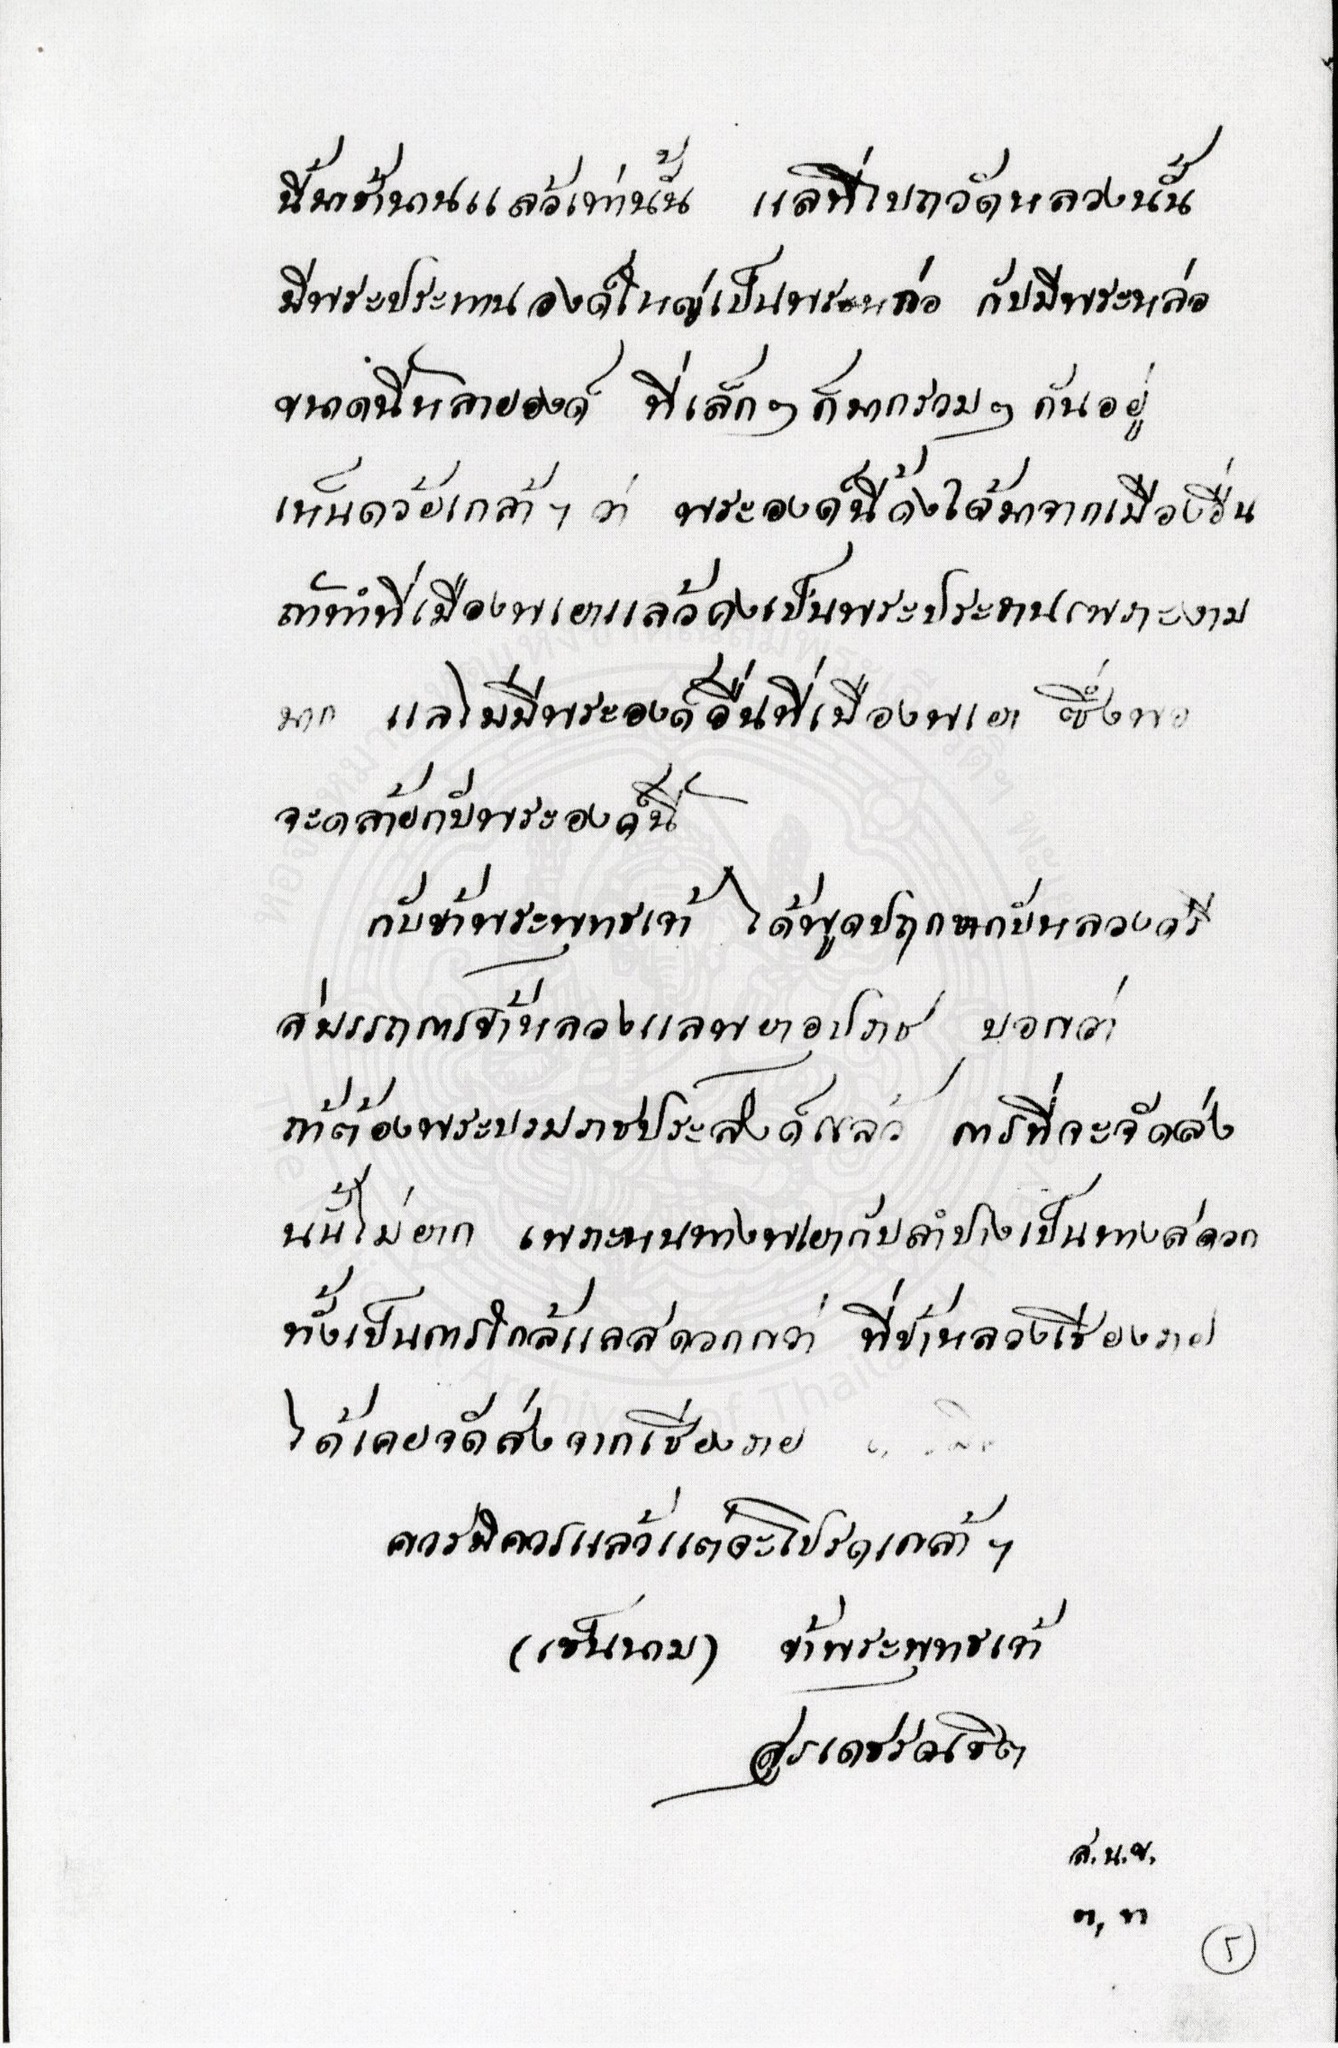 นี้มาช้านานแล้วเท่านั้น แลที่ไปถวัดหลวงนั้น
มีพระประทานองค์ใหญ่เป็นพระหล่อ กับมีพระหล่อ
ขนาดนี้หลายองค์ ที่เล็กๆ ก็มากรวมๆ กันอยู่
เห็นด้วยเกล้าฯ ว่า พระองค์นี้คงได้มาจากเมืองอื่น
ถ้าทำที่เมืองพเยาแล้วคงเป็นพระประทานเพราะงาม
มาก แลไม่มีพระองค์อื่นที่เมืองพเยา ซึ่งพอ
จะคล้ายกับพระองค์นี้
กับข้าพระพุทธเจ้า ได้พูดปฤกษากับหลวงศรี
สมรรถการข้าหลวงแลพยาอุปราช บอกว่า
ถ้าต้องพระบรมราชประสงค์แล้ว การที่จะจัดส่ง
นั้นไม่ยาก เพราะหนทางพเยากับลำปางเป็นทางสดวก
ทั้งเป็นการใกล้แลสดวกกว่า ที่ข้าหลวงเชียงราย
ได้เคยจัดส่งจากเชียงราย
ควรมิควรแล้วแต่จะโปรดเกล้าฯ
(เซ็นนาม) ข้าพระพุทธเจ้า
สูรเดชรณชิต
ส.น.ช.
๓, ท
๕
หอจดหมายเหตุแห่งชาติเฉลิมพระเกียรติฯ พะเยา
Archives of Thailand